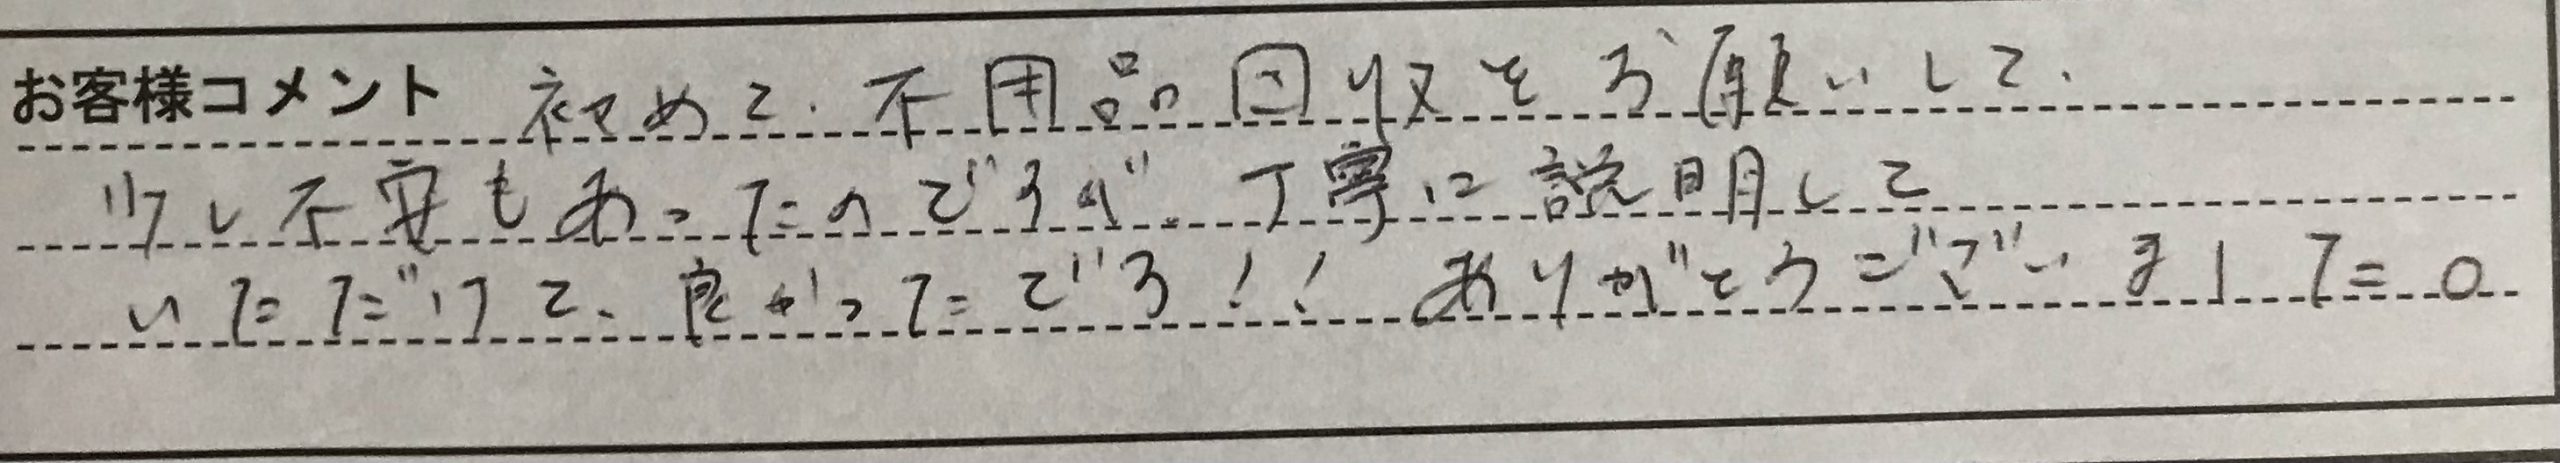 お客様コメント 初めて、不用品回収をお願いして、
少し不安もあったのですが、丁寧に説明して
いただけて、良かったです!! ありがとうございました。